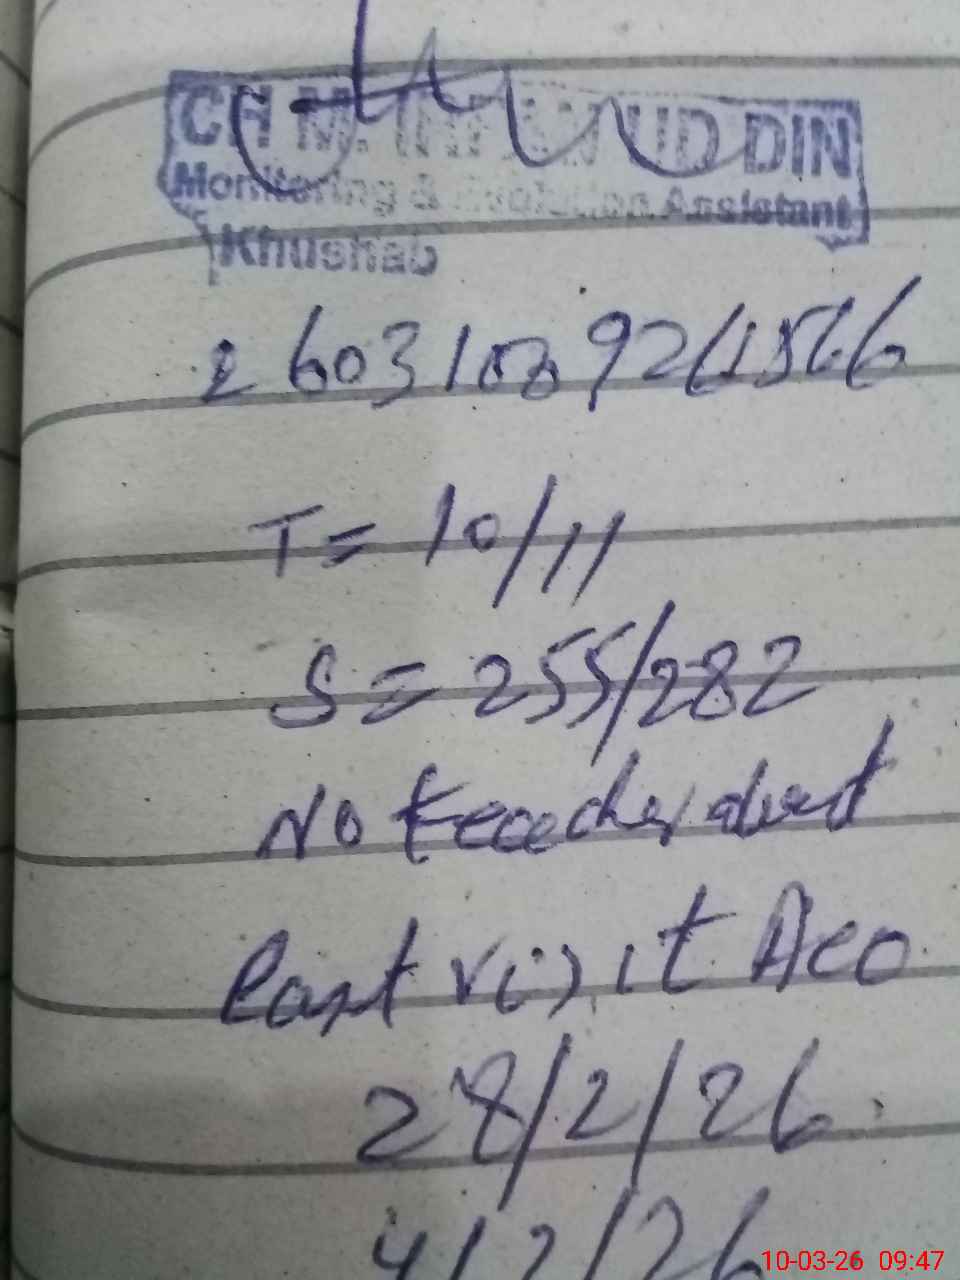 CH M. UD DIN
Monitoring & Assistant
Khushab
T = 10/11
S = 255/282
No teacher
Last visit Aeo
28/2/26
4/2/26
10-03-26 09:47